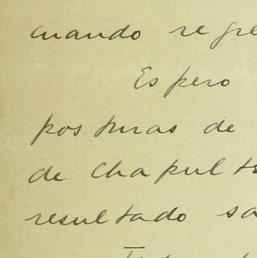 cuando regre
Espero
posturas de
de Chapulte
resultado sa